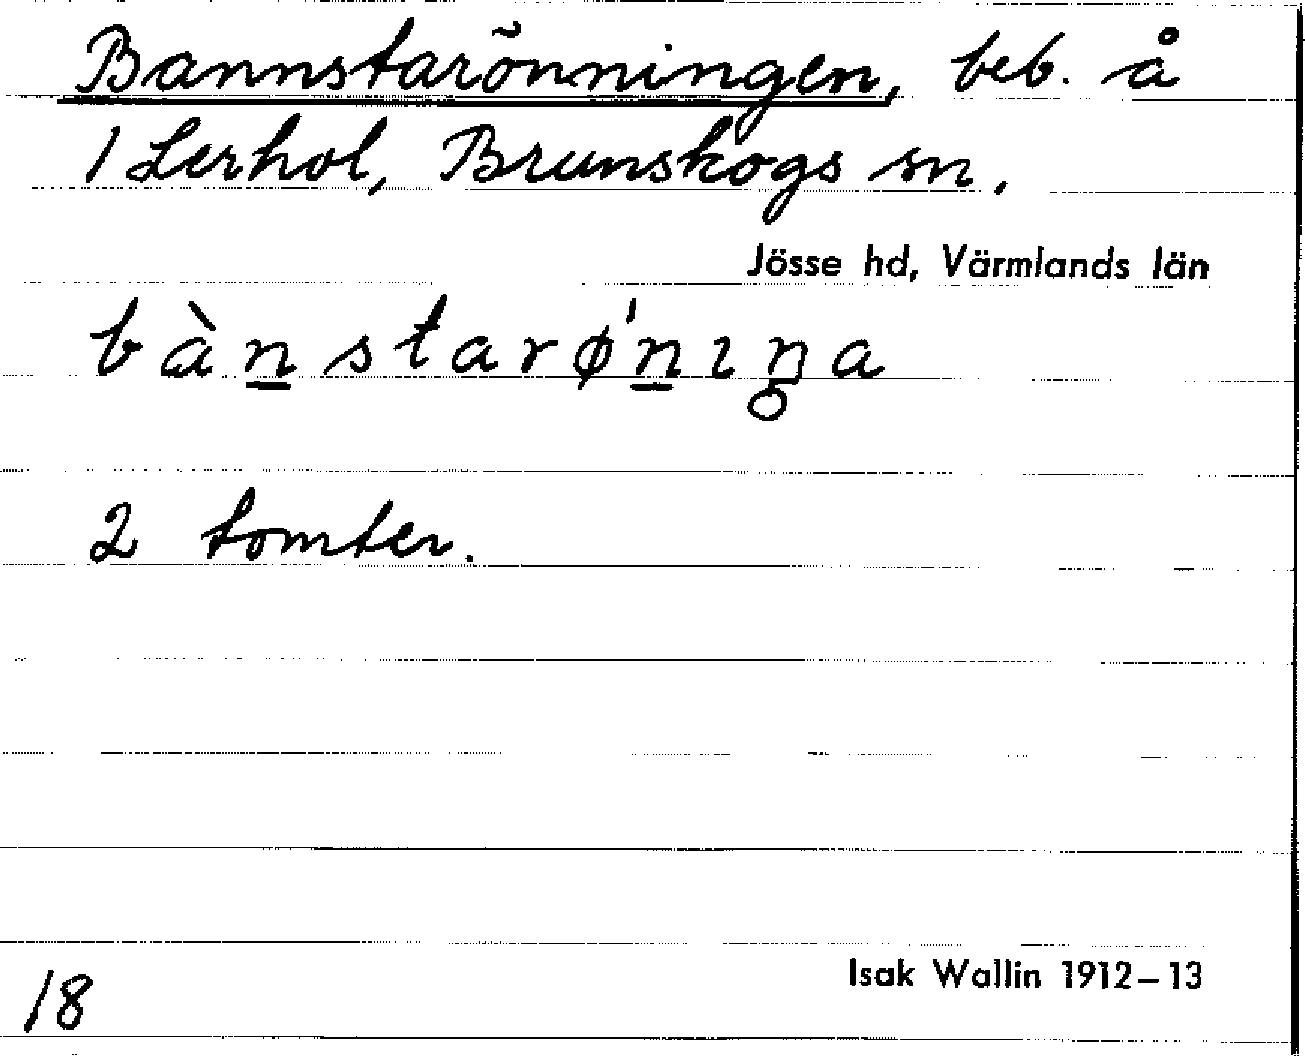 Bannstarönningen, beb. å
1 Lerhol, Brunskogs sn.
Jösse hd, Värmlands län
bàn̲starǿn̲ıŋ̥a
2 tomter.
Isak Wallin 1912–13
18